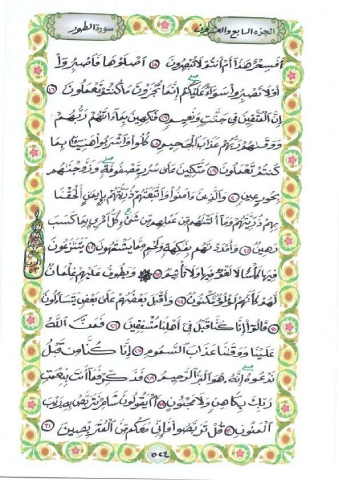 الجزء السابع والعشرون
سورة الطور
أَفَسِحْرٌ هَذَا أَمْ أَنتُمْ لَا تُبْصِرُونَ ١٥ اصْلَوْهَا فَاصْبِرُوا
أَوْ لَا تَصْبِرُوا سَوَاءٌ عَلَيْكُمْ إِنَّمَا تُجْزَوْنَ مَا كُنتُمْ تَعْمَلُونَ ١٦
إِنَّ الْمُتَّقِينَ فِي جَنَّاتٍ وَنَعِيمٍ ١٧ فَاكِهِينَ بِمَا آتَاهُمْ رَبُّهُمْ
وَوَقَاهُمْ رَبُّهُمْ عَذَابَ الْجَحِيمِ ١٨ كُلُوا وَاشْرَبُوا هَنِيئًا بِمَا
كُنتُمْ تَعْمَلُونَ ١٩ مُتَّكِئِينَ عَلَى سُرُرٍ مَّصْفُوفَةٍ وَزَوَّجْنَاهُم
بِحُورٍ عِينٍ ٢٠ وَالَّذِينَ آمَنُوا وَاتَّبَعَتْهُمْ ذُرِّيَّتُهُم بِإِيمَانٍ أَلْحَقْنَا
بِهِمْ ذُرِّيَّتَهُمْ وَمَا أَلَتْنَاهُم مِّنْ عَمَلِهِم مِّن شَيْءٍ كُلُّ امْرِئٍ بِمَا كَسَبَ
رَهِينٌ ٢١ وَأَمْدَدْنَاهُم بِفَاكِهَةٍ وَلَحْمٍ مِّمَّا يَشْتَهُونَ ٢٢ يَتَنَازَعُونَ
فِيهَا كَأْسًا لَّا لَغْوٌ فِيهَا وَلَا تَأْثِيمٌ ٢٣ وَيَطُوفُ عَلَيْهِمْ غِلْمَانٌ
لَّهُمْ كَأَنَّهُمْ لُؤْلُؤٌ مَّكْنُونٌ ٢٤ وَأَقْبَلَ بَعْضُهُمْ عَلَى بَعْضٍ يَتَسَاءَلُونَ
٢٥ قَالُوا إِنَّا كُنَّا قَبْلُ فِي أَهْلِنَا مُشْفِقِينَ ٢٦ فَمَنَّ اللَّهُ
عَلَيْنَا وَوَقَانَا عَذَابَ السَّمُومِ ٢٧ إِنَّا كُنَّا مِن قَبْلُ
نَدْعُوهُ إِنَّهُ هُوَ الْبَرُّ الرَّحِيمُ ٢٨ فَذَكِّرْ فَمَا أَنتَ بِنِعْمَتِ
رَبِّكَ بِكَاهِنٍ وَلَا مَجْنُونٍ ٢٩ أَمْ يَقُولُونَ شَاعِرٌ نَّتَرَبَّصُ بِهِ رَيْبَ
الْمَنُونِ ٣٠ قُلْ تَرَبَّصُوا فَإِنِّي مَعَكُم مِّنَ الْمُتَرَبِّصِينَ ٣١
٥٢٤